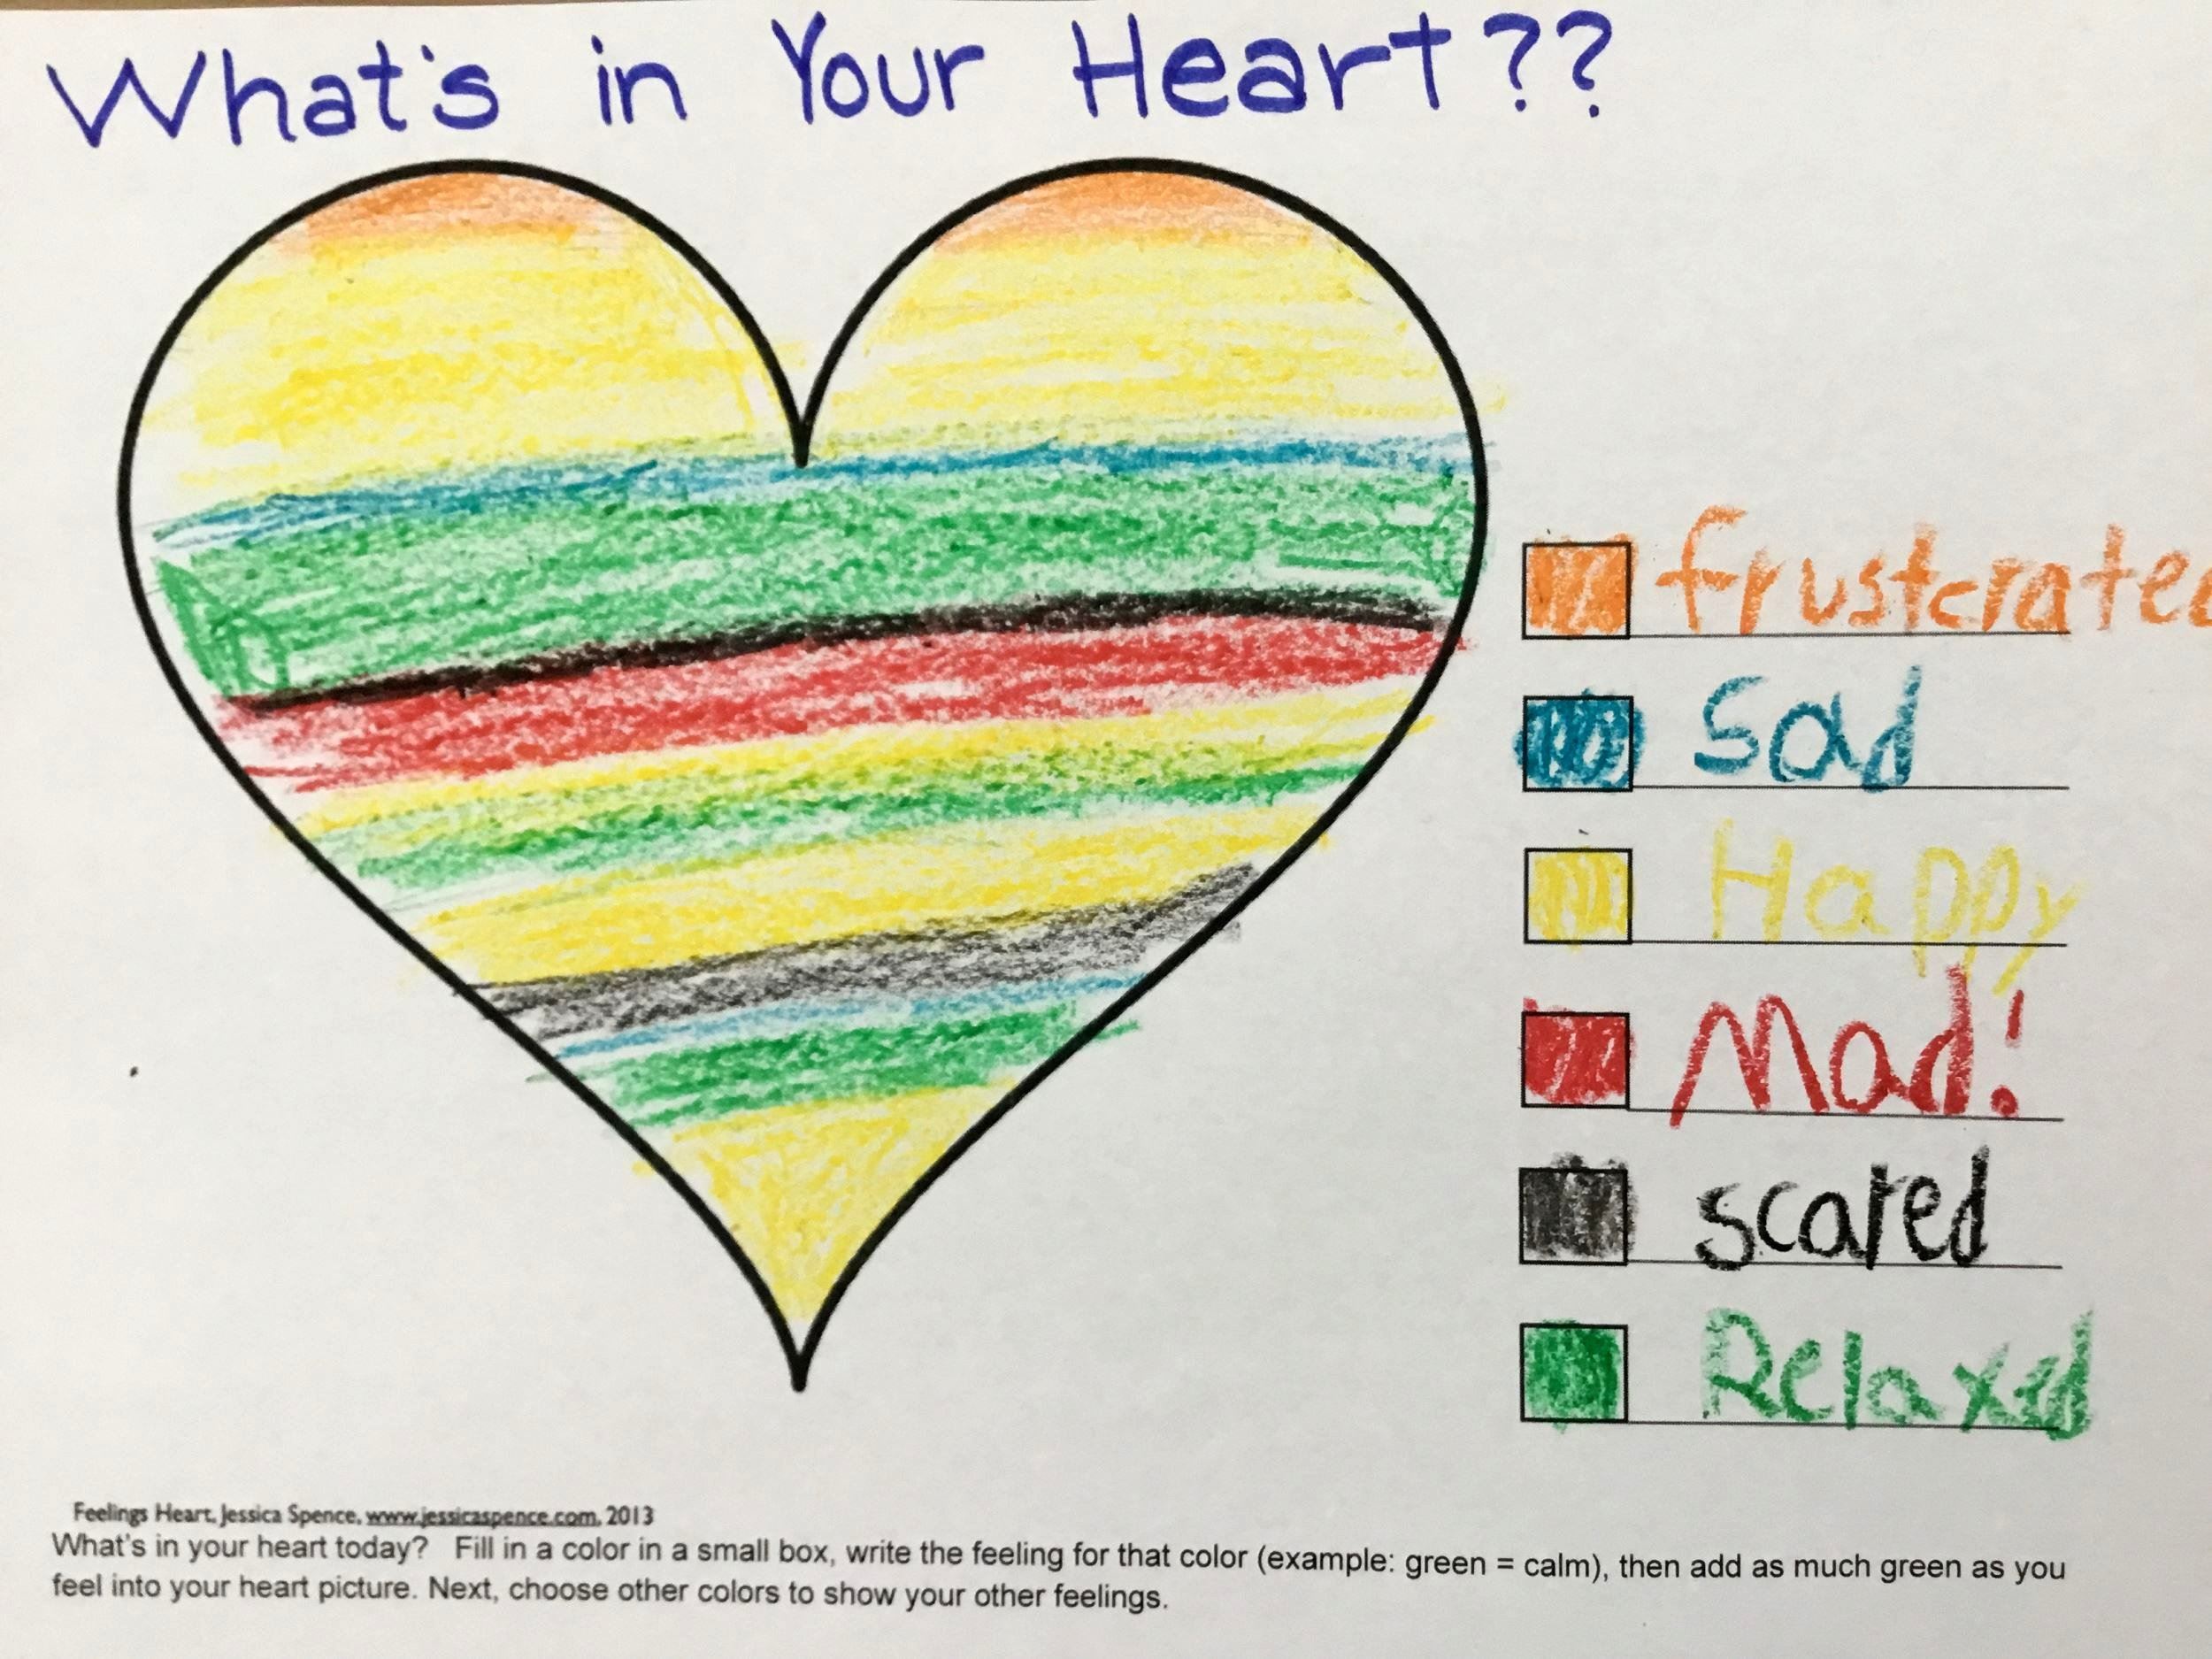 What's in Your Heart??
frustcrated
Sad
Happy
Mad!
scared
Relaxed
Feelings Heart, Jessica Spence, www.jessicaspence.com, 2013
What's in your heart today? Fill in a color in a small box, write the feeling for that color (example: green = calm), then add as much green as you
feel into your heart picture. Next, choose other colors to show your other feelings.